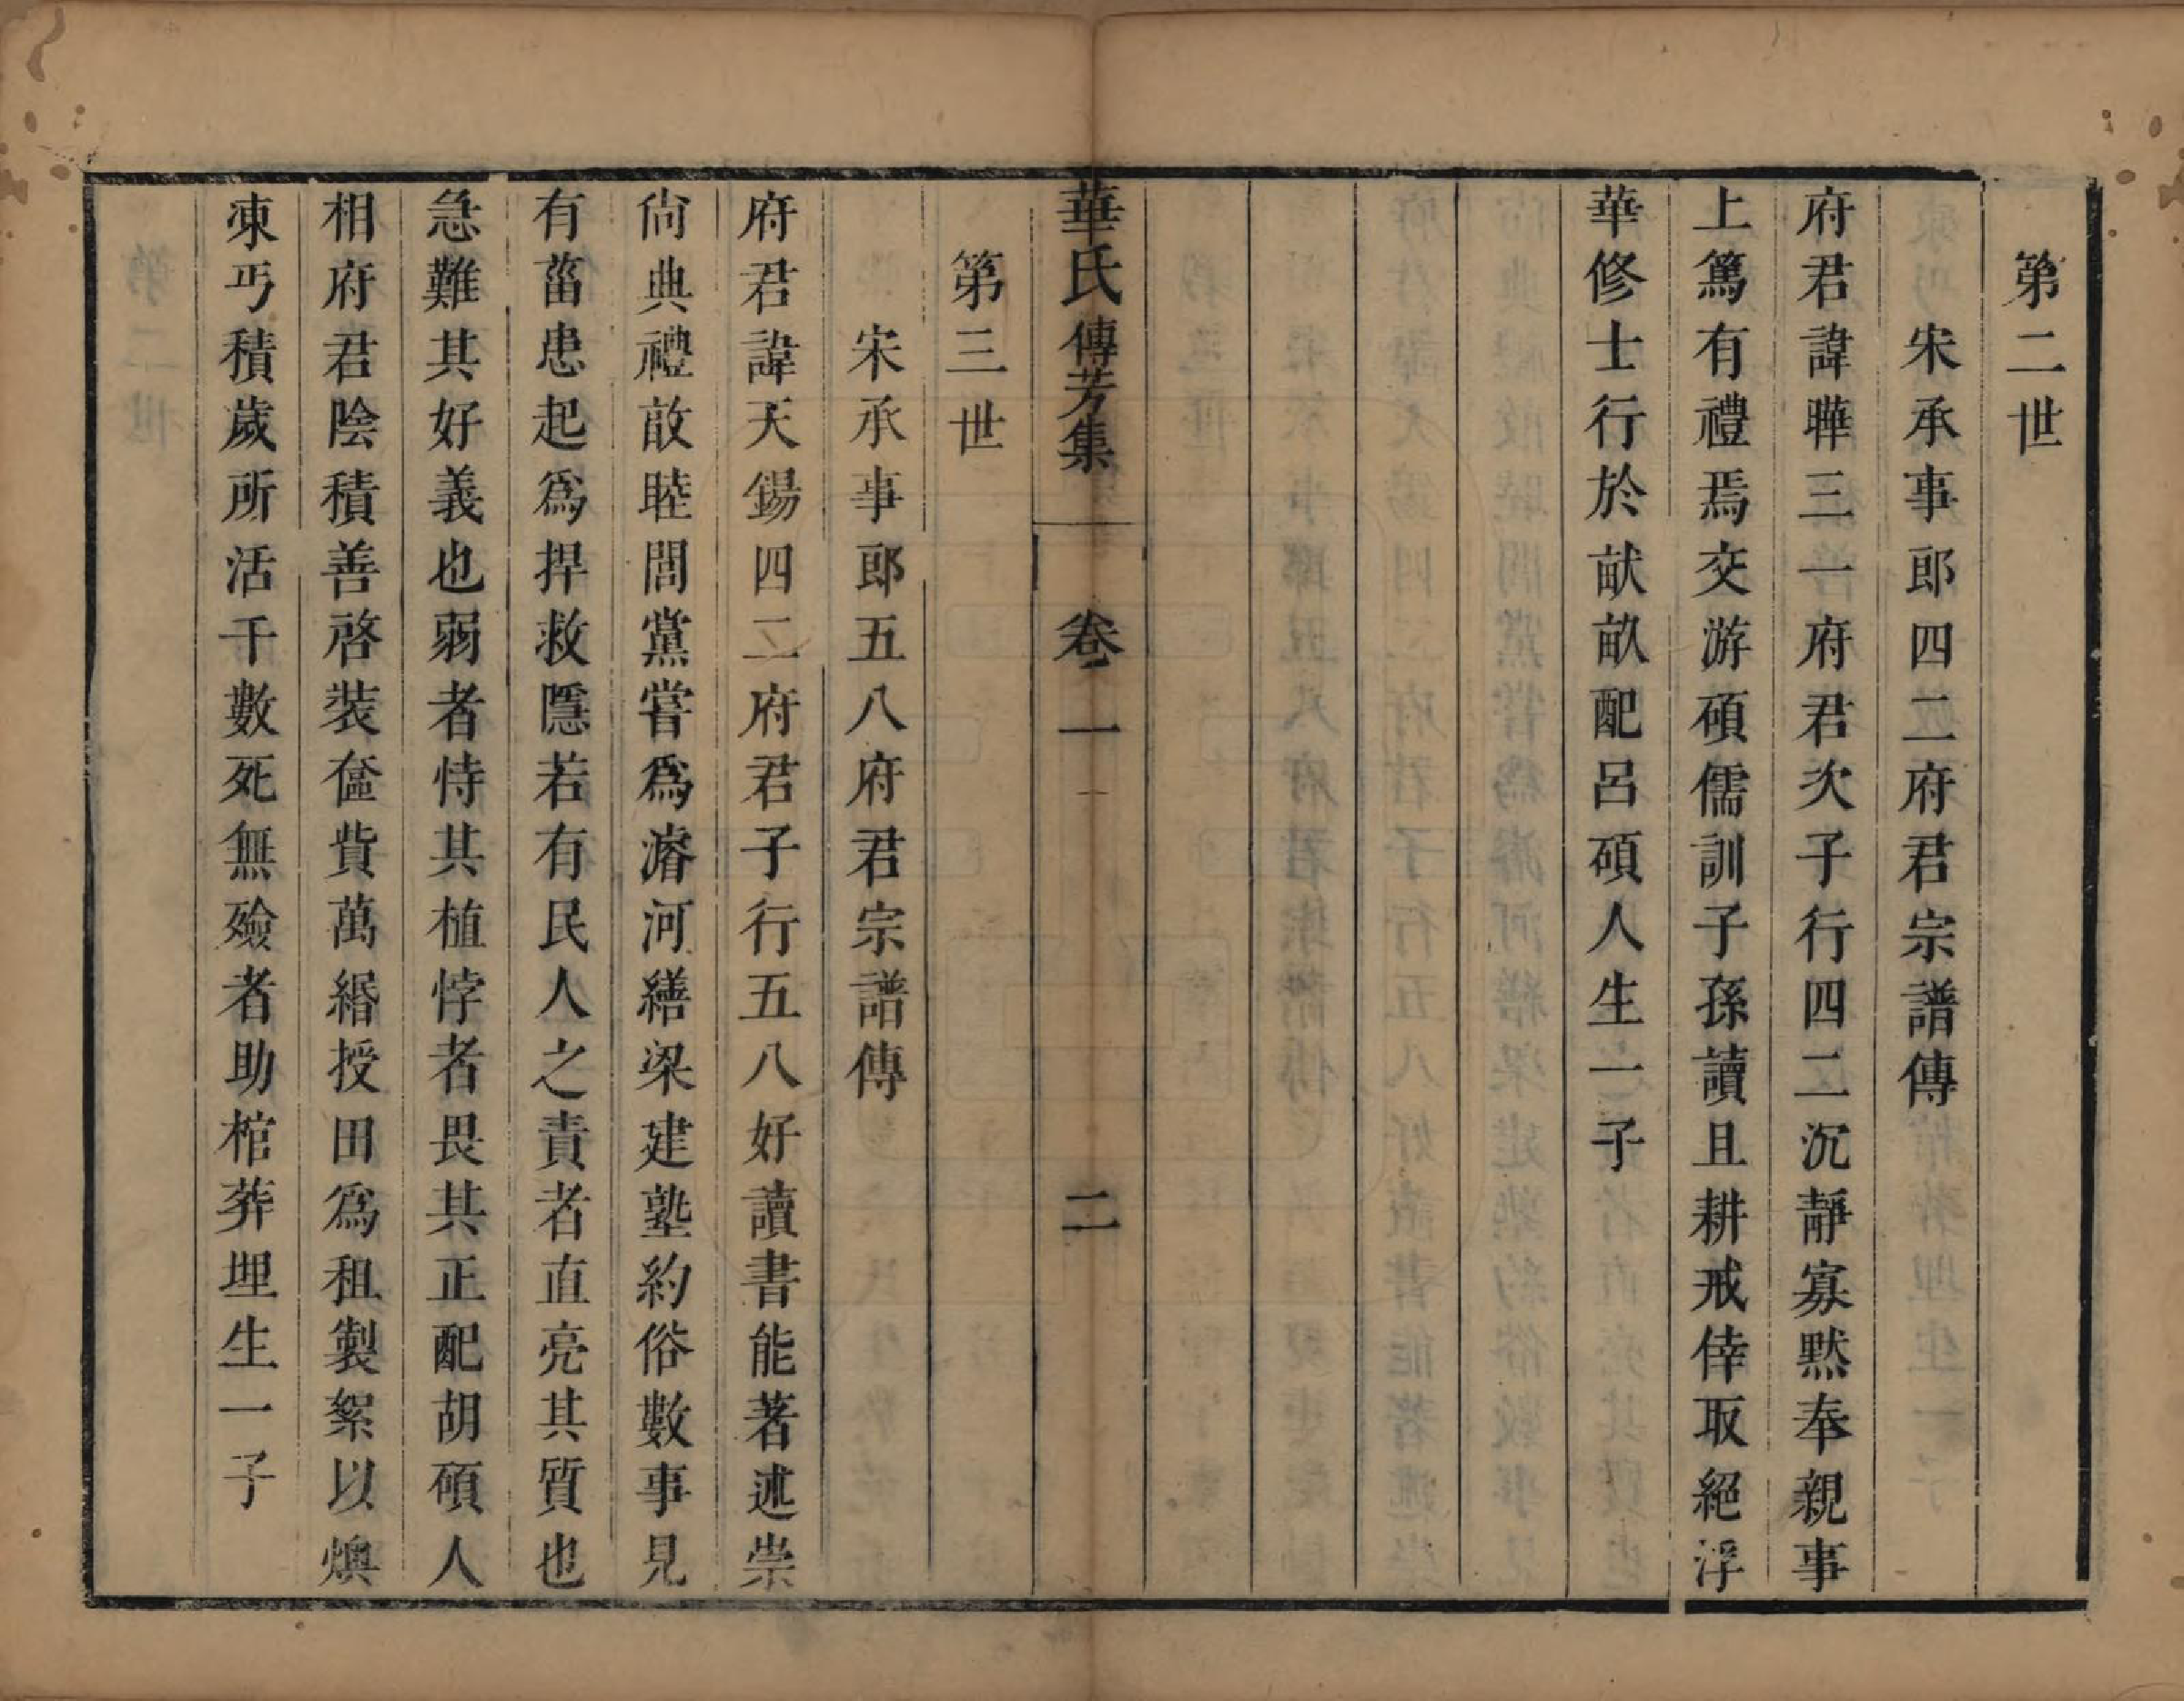 第二世
宋承事郎四二府君宗譜傳
府君諱曄三一府君次子行四二沉靜寡默奉親事
上篤有禮焉交游碩儒訓子孫讀且耕戒倖取絕浮
華修士行於畎畝配呂碩人生一子
華氏傳芳集 卷一 二
第三世
宋承事郎五八府君宗譜傳
府君諱天錫四二府君子行五八好讀書能著述崇
尙典禮敨睦閭黨嘗爲濬河繕梁建塾約俗數事見
有菑患起爲捍救隱若有民人之責者直亮其質也
急難其好義也弱者恃其植悖者畏其正配胡碩人
相府君陰積善啓裝奩貲萬緡授田爲租製絮以燠
凍丐積歲所活千數死無殮者助棺葬埋生一子